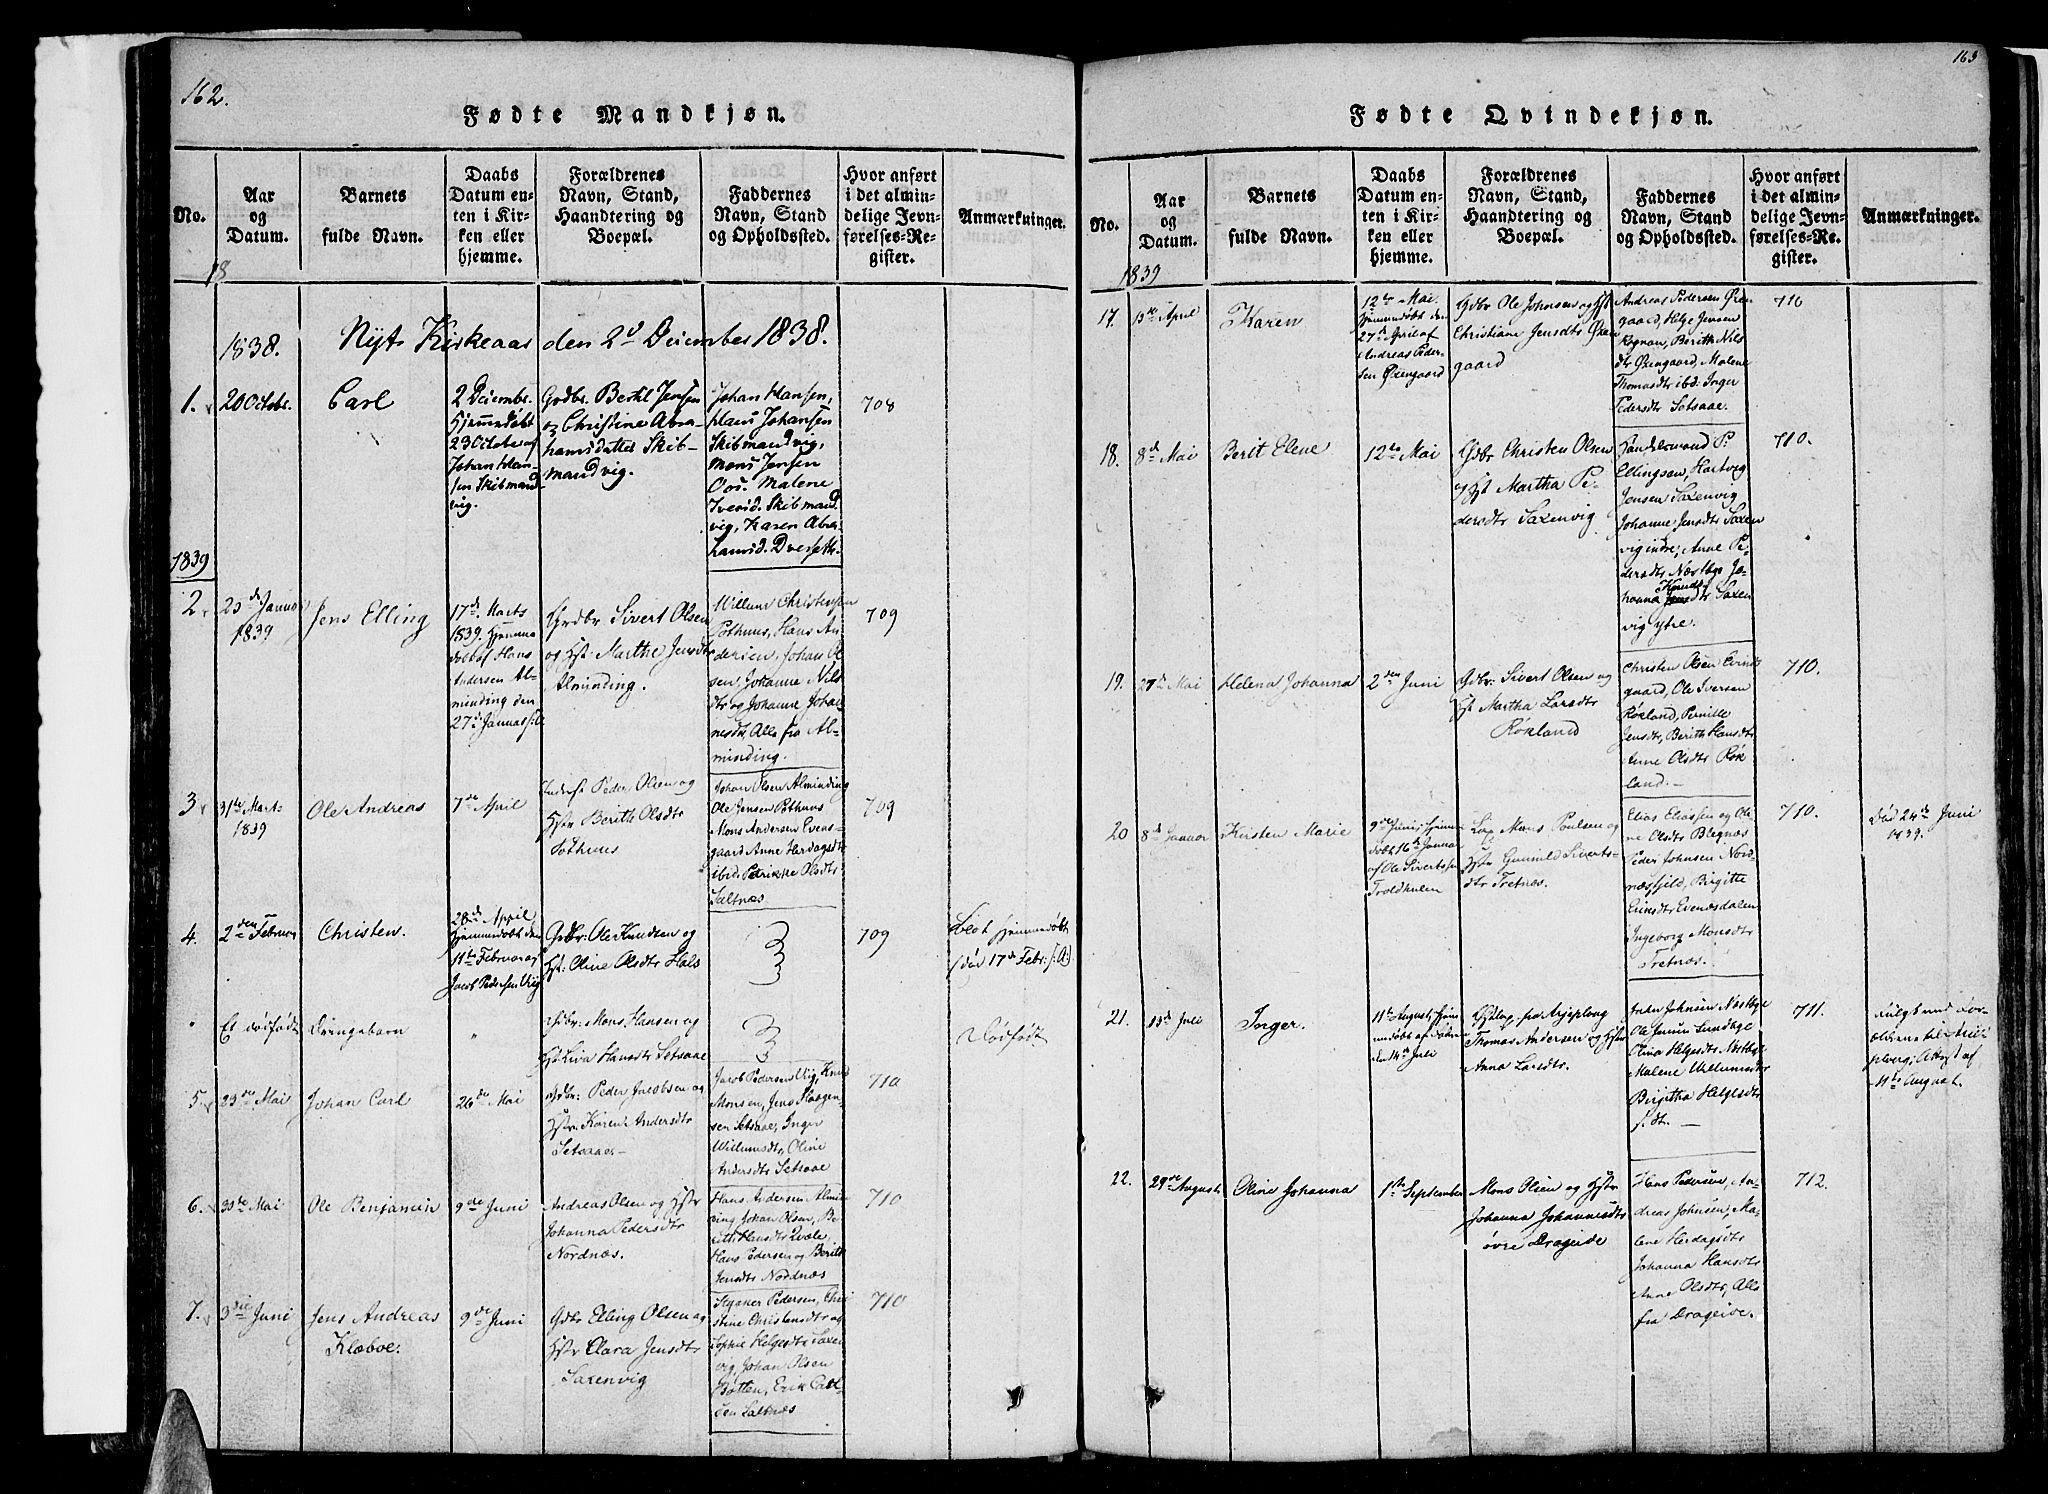 162.
Fødte Mandkjøn.
No.
Aar
og
Datum.
Barnets
fulde Navn.
Daabs
Datum en-
ten i Kir-
ken eller
hjemme.
Forældrenes
Navn, Stand,
Haandtering og
Boepæl.
Faddernes
Navn, Stand
og Opholdssted.
Hvor anført
i det almin-
delige Jevn-
førelses-Re-
gister.
Anmærkninger.
18
1838. Nyt Kirkeaar den 2d December 1838.
1.
20 Octobr.
Carl
2 Decembr.
Hjemmedøbt
23 October af
Johan Han-
sen Skibmand-
vig.
Grdbr. Bertil Jensen
og Christine Abra-
hamsdatter Skib-
mandvig.
Johan Hansen,
Hans Johansen
Skibmandvig,
Mons Jensen
Oos. Malene
Iversd. Skibmand
vig, Karen Abra-
hamsd. Dverseth.
708
1839
2
1839
Jens Elling
17de Marts
1839. Hjemme
døbt af Hans
Andersen Al-
minding den
27de Januar
Grdbr Sivert Olsen
og Hst. Marthe Jensdtr
Alminding.
Willum Christensen
Pothuus, Hans An
dersen, Johan Ol
sen, Johanne Nils
dtr og Johanne Johan
nesdtr, Alle fra Al-
minding.
709
3
31te Marts
1839
Ole Andreas
7de April
Inderst Peder Olsen og
Hstr Berith Olsdtr
Pothuus
Johan Olsen Alminding
Ole Jensen Pothuus
Mons Andersen Evens-
gaard Anne Herdagsdtr
ibid. Petrikke Olsdtr
Saltnæs
709
4.
2den Februar
Christen.
28de April,
Hjemmedøbt den
11te Februar af
Jacob Pedersen Vig
Grdbr: Ole Knudsen og
Hst: Oline Olsdtr Hals
709
Blot hjemmedøbt
(død 17de Febr:
Et dødfødt Drengebarn
"
Grdbr: Mons Hansen og
Hst Liva Hansdtr Setsaae
Dødfødt
5.
23de Mai
Johan Carl
26de Mai
Grdbr: Peder Jacobsen og
Hstr: Karen Andersdtr
Setsaae.
Jacob Pedersen Vig, Knud
Monsen, Jens Haagen-
sen Setsaae, Inger
Willumsdtr, Oline
Andersdtr Setsaae
710
6.
30te Mai
Ole Benjamin
9de Juni
Andreas Olsen og Hstr
Johanna Pedersdtr
Nordnæs.
Hans Andersen Almin
ding, Johan Olsen, Be
rith Hansdtr Qvale
Hans Pedersen og Berith
Jensdtr Nordnæs
710
7.
3die Juni
Jens Andreas
Klæboe.
9de Juni
Grdbr Elling Olsen og
Hstr Clara Jensdtr
Saxenvig
Styaner Pedersen, Chri
stine Christensdtr og
Sophie Helgesdtr Saxen
vig, Johan Olsen
Botten, Erik Carl-
sen Saltnæs
710
163
Fødte Qvindekjøn.
No.
Aar
og
Datum.
Barnets
fulde Navn.
Daabs
Datum en-
ten i Kir-
ken eller
hjemme.
Forældrenes
Navn, Stand,
Haandtering og
Boepæl.
Faddernes
Navn, Stand
og Opholdssted.
Hvor anført
i det almin-
delige Jevn-
førelses-Re-
gister.
Anmærkninger.
1839
17.
13de April
Karen
12te Mai.
Hjemmedøbt den
27de April af
Andreas Peder-
sen Øxengaard
Gdbr Ole Johnsen og Hst
Christiane Jensdtr Øxen
gaard
Andreas Pedersen Øxen-
gaard, Helge Jensen
Rognan, Berith Nils
dtr Øxengaard, Malene
Thomasdtr ibd. Inger
Pedersdtr Setsaae.
710
18.
8de Mai
Berit Elene
12te Mai
Gdbr Christen Olsen
og Hst Martha Pe-
dersdtr Saxenvig
Handelsmand P.
Ellingsen, Hartvig
Jensen Saxenvig
Johanne Jensdtr Saxen
vig indre, Anne Pe-
dersdtr Næstbye Jo-
hanna Knudsdtr Saxen
vig ytre.
710.
19.
27de Mai
Helena Johanna
2den Juni
Gdbr: Sivert Olsen og
Hst Martha Larsdtr
Røkland
Christen Olsen Evens
gaard, Ole Iversen
Røkland, Pernille
Jensdtr, Berith Hansdtr
Anne Olsdtr Røk
land.
710.
20
8de Januar
Kirsten Marie
9de Juni, hjemme
døbt 16de Januar
af Ole Sivertsen
Troldhulen
Lap Mons Poulsen og
Hstr Gunild Siverts-
dtr Tretnæs.
Elias Eliassen og Ole
ne Olsdtr Blegnæs
Peder Johnsen Nord-
næsfjeld, Birgitte
Eriksdtr Evenesdalen
Ingeborg Monsdtr
Tretnæs.
710.
Død 24de Juni
1839.
21.
13de Juli
Inger.
11te August, hjem
medøbt af
den 14de Juli
Østlap fra Arjeplong
Thomas Andersen og Hstr
Anna Larsdtr.
Peder Johnsen Næstbye
Ole Jensen Lundbye
Olina Helgesdtr Næstbye
Malene Willumsdtr
Birgitha Helgesdtr
711.
11te August.
22.
29de August
Oline Johanna
1ste September
Mons Olsen og Hstr
Johanna Johannesdtr
øvre Drageide
Hans Pedersen, An-
dreas Johnsen, Ma-
lene Herdagsdtr
Johanna Hansdtr
Anne Olsdtr, Alle
fra Drageide.
712.